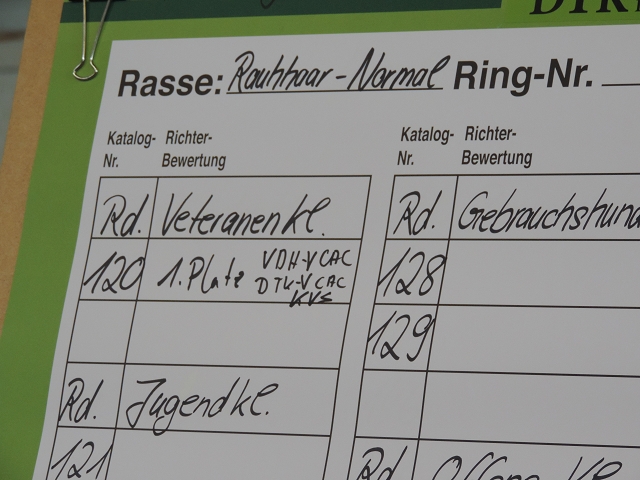 Rasse: Rauhhaar-Normal Ring-Nr.
Katalog-Nr. Richter-Bewertung
Rd. Veteranenkl.
120 1. Platz VDH-V CAC
DTK-V CAC
KVS
Rd. Jugendkl.
121
Katalog-Nr. Richter-Bewertung
Rd.
128
129
Rd. Offene Kl.